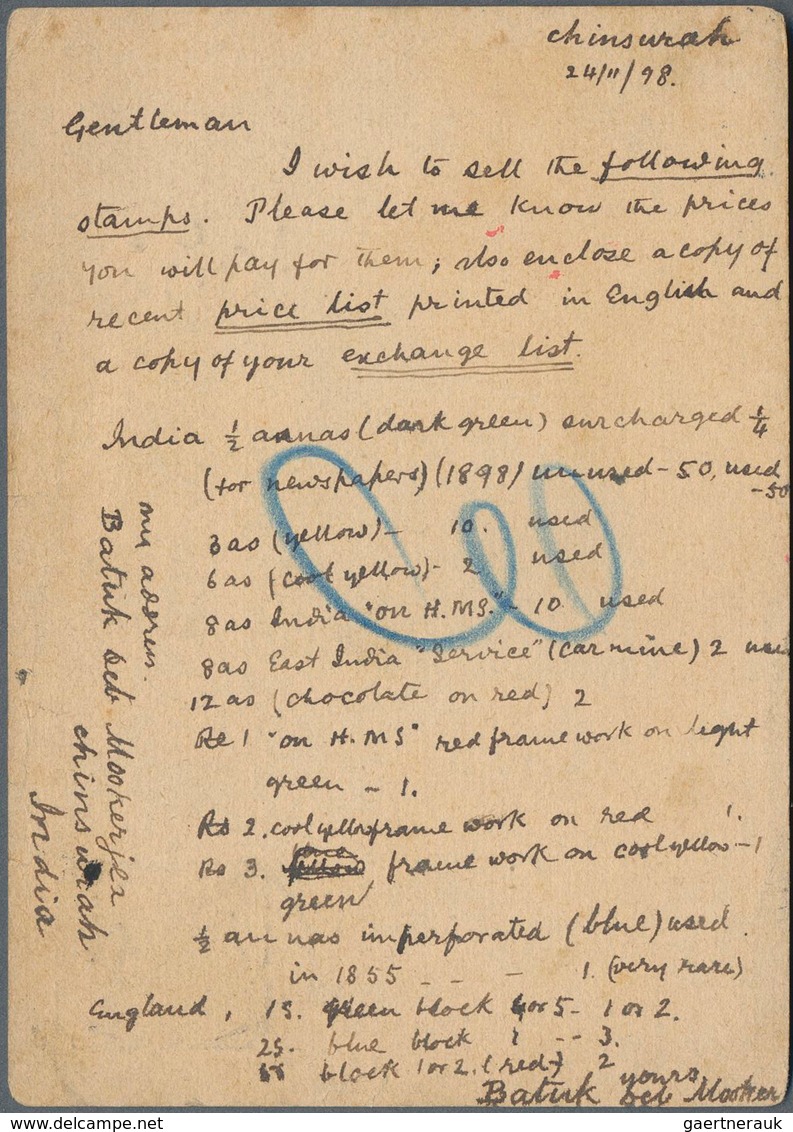 chinsurah
24/11/98.
Gentleman
I wish to sell the following
stamps. Please let me know the prices
you will pay for them; also enclose a copy of
recent price list printed in English and
a copy of your exchange list.
India ½ annas (dark green) surcharged ¼
(for newspapers) (1898) unused - 50, used
- 50
3 as (yellow) - 10. used
6 as (cool yellow) - 2 used
8 as India "on H.M.S." - 10 used
8 as East India "Service" (carmine) 2 used
12 as (chocolate on red) 2
Re 1 "on H.M.S" red frame work on light
green - 1.
Rs 2. cool yellow frame work on red 1.
Rs 3. frame work on cool yellow - 1
green
½ annas imperporated (blue) used.
in 1855 - - - 1. (very rare)
England, 1S. green block 4 or 5 - 1 or 2.
2S. blue block 1 -- 3.
block 1 or 2. (red) 2
yours
Batuk Deb Mooker
my adress.
Batuk Deb Mookerjea
chinsurah
India
gaertnerauk